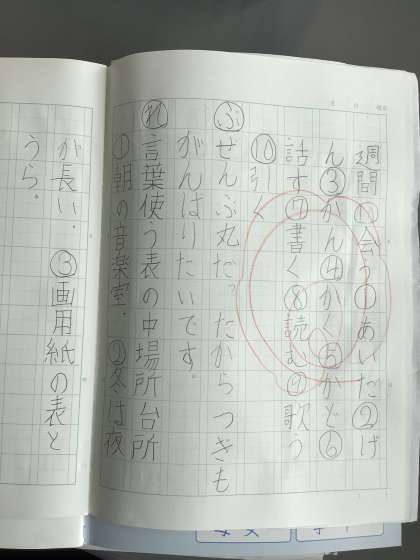 週間 ⑪会う①あいだ②げ
ん③がん④かく⑤かど⑥
話す⑦書く⑧読む⑨歌う
⑩引く
ぶぜんぶ丸だった。だからつぎも
がんばりたいです。
れ言葉使う表の中場所台所
①朝の音楽室。②冬は夜
が長い。③画用紙の表と
うら。